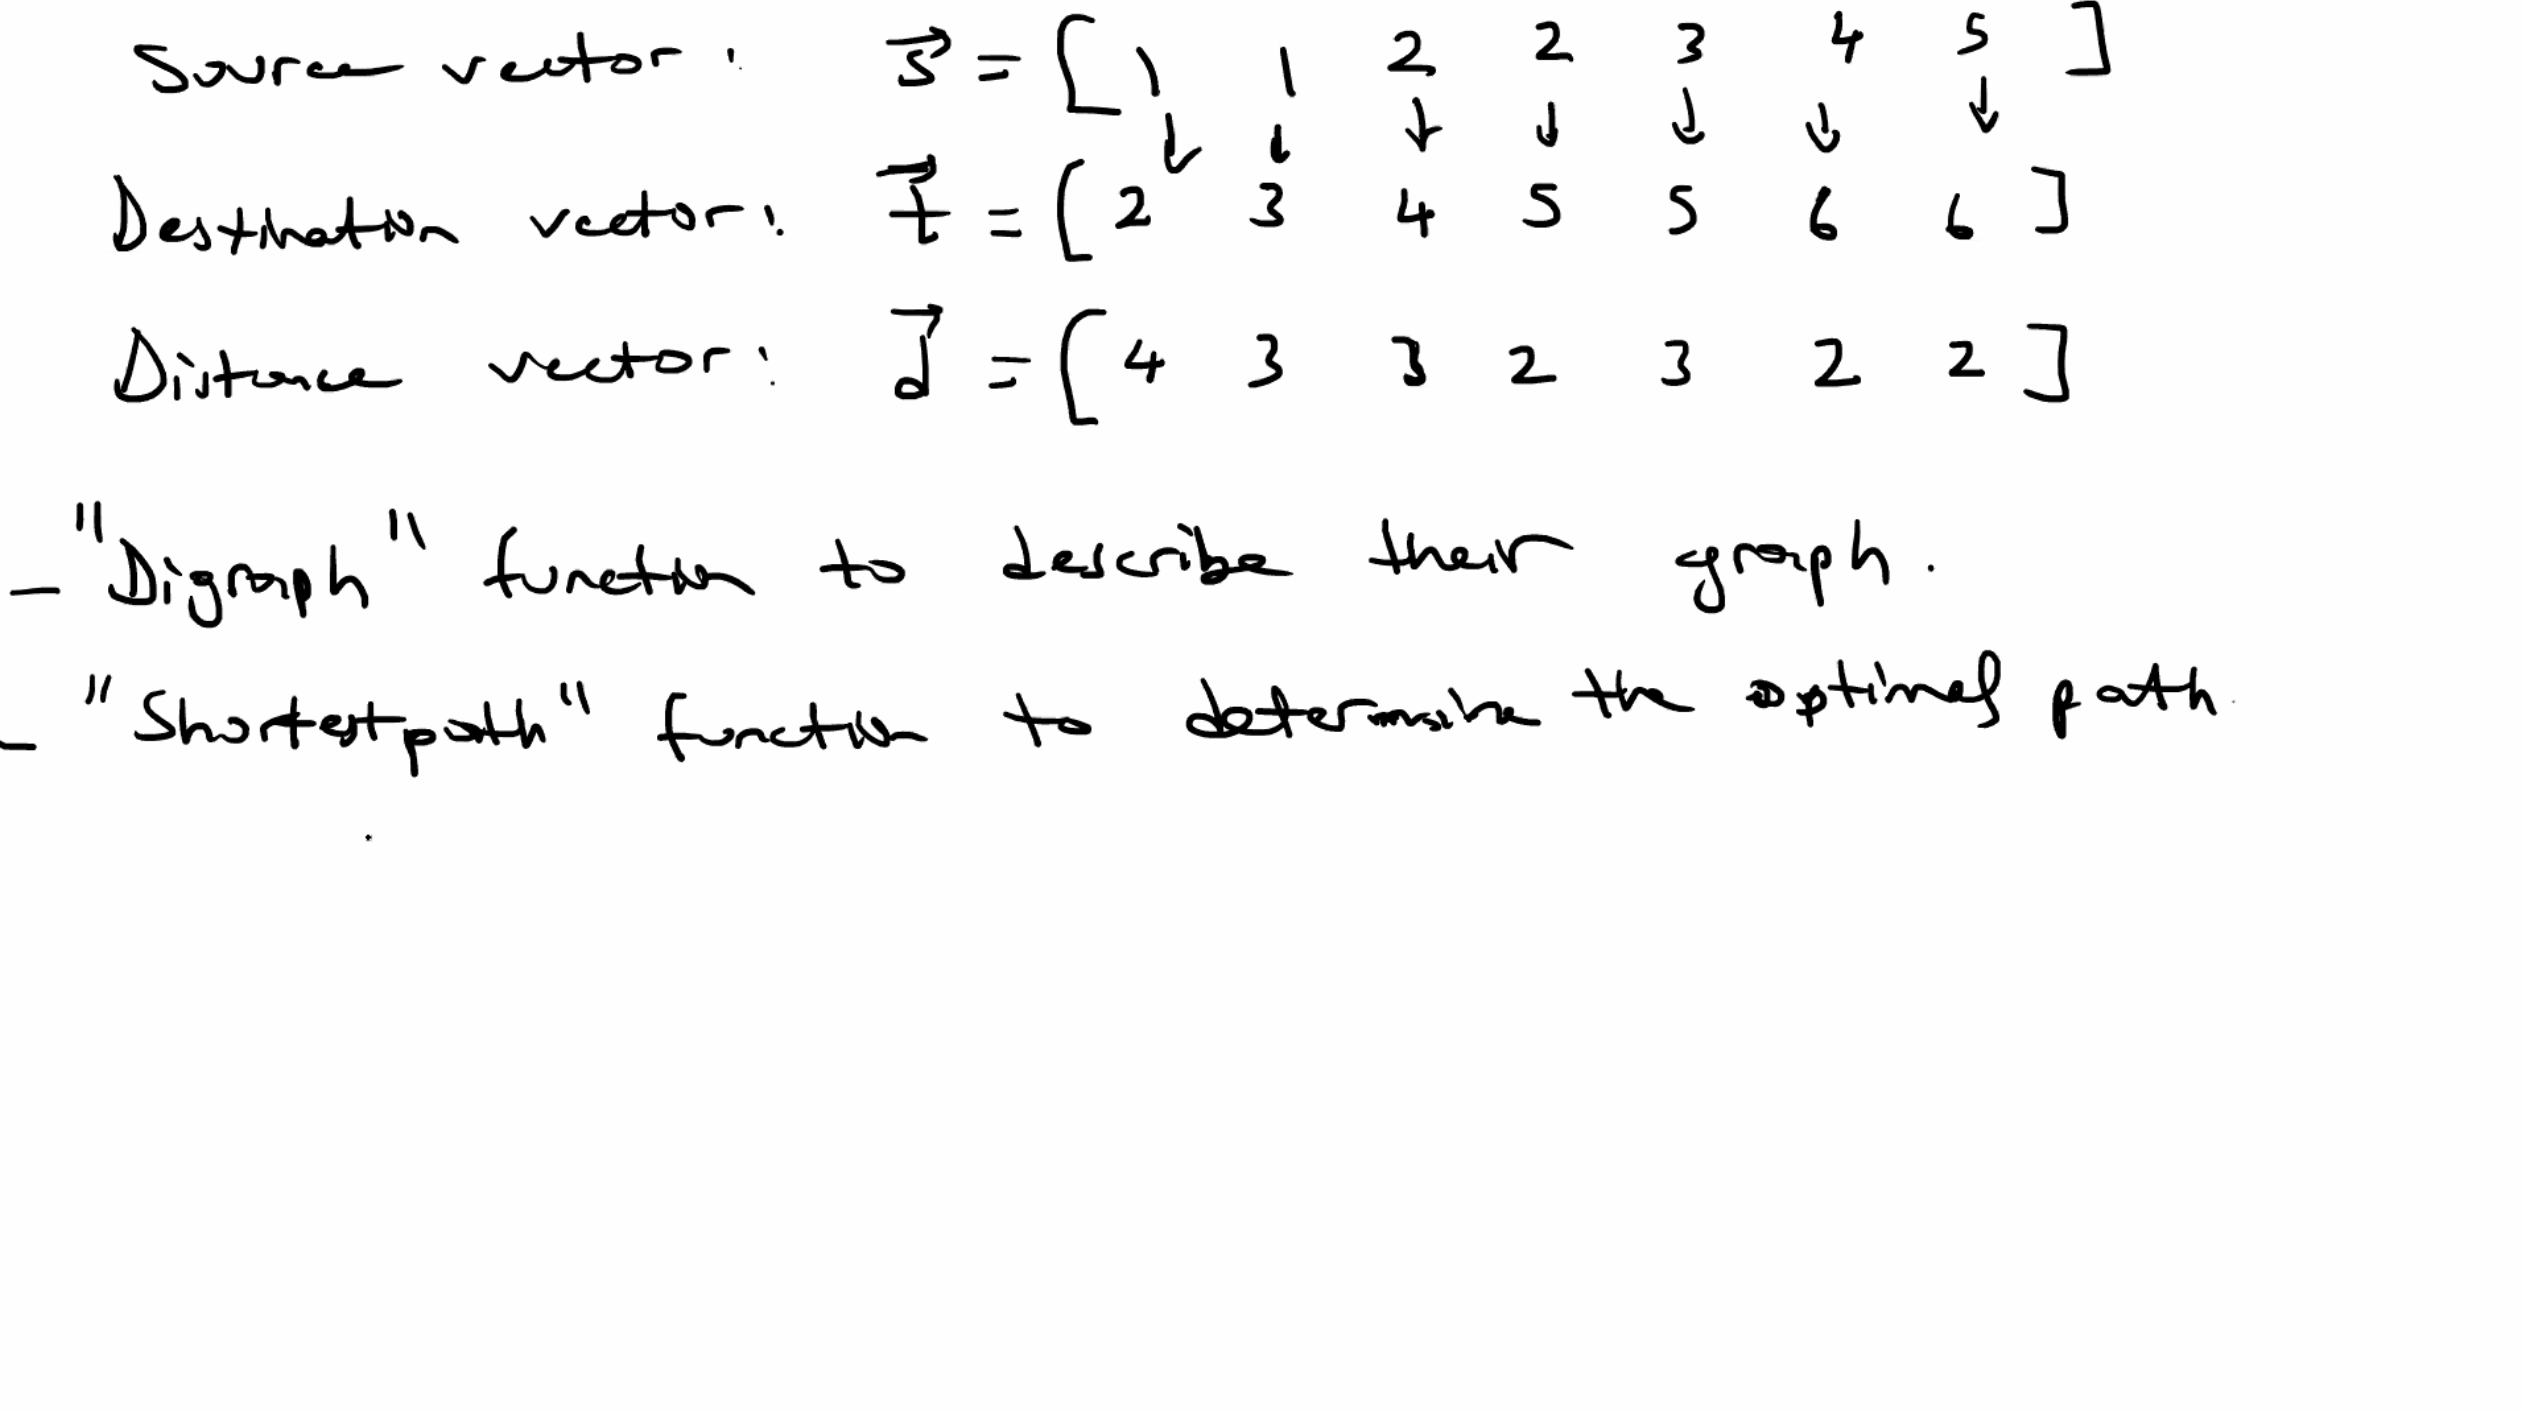 Source vector: s = [ 1 1 2 2 3 4 5 ]
↓ ↓ ↓ ↓ ↓ ↓ ↓
Destination vector: t = [ 2 3 4 5 5 6 6 ]
Distance vector: d = [ 4 3 3 2 3 2 2 ]
- "Digraph" function to describe their graph.
- "Shortestpath" function to determine the optimal path